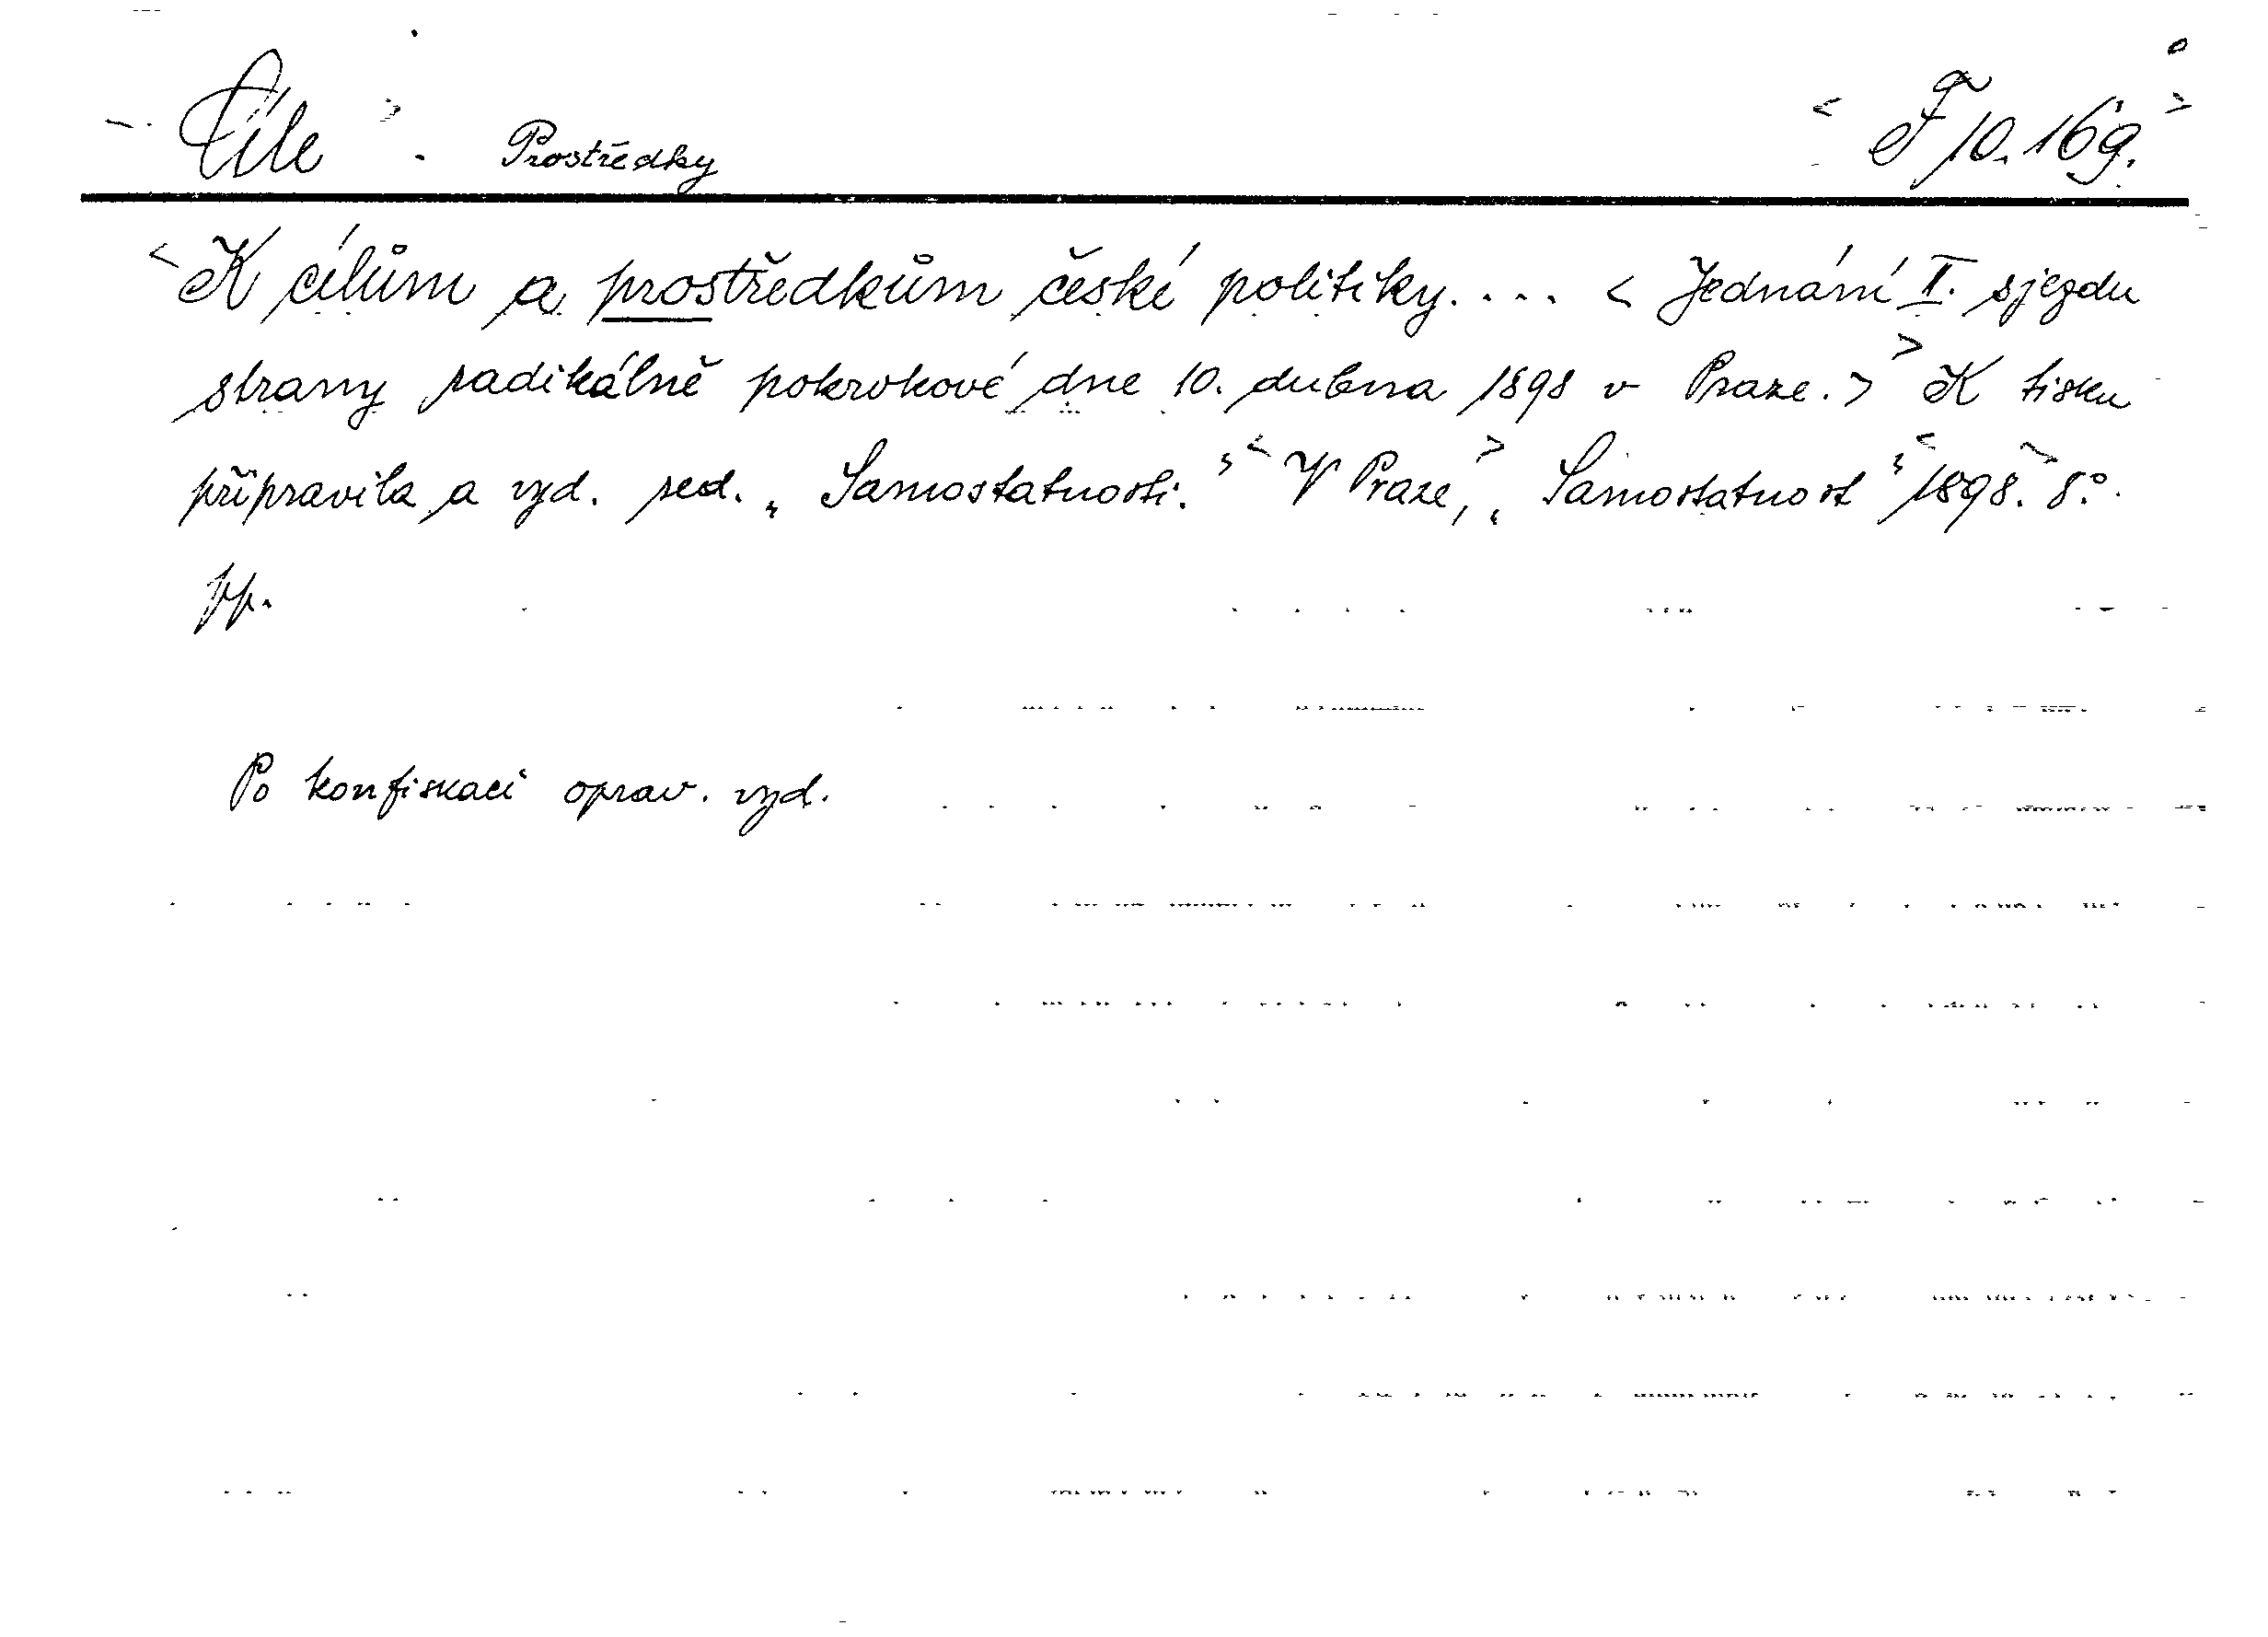 Cíle . Prostředky < F 10.169. >
< K cílům a prostředkům české politiky.... < Jednání II. sjezdu
strany radikálně pokrokové dne 10. dubna 1898 v Praze. > > K tisku
připravila a vyd. red. „Samostatnosti.“ < V Praze, > „Samostatnost“ < 1898. > 8°.